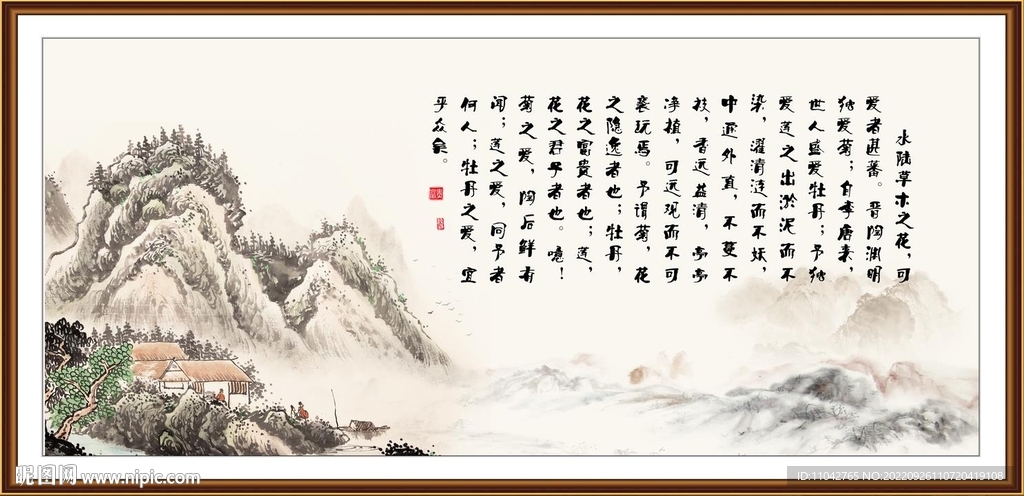 水陆草木之花，可
爱者甚蕃。晋陶渊明
独爱菊；自李唐来，
世人盛爱牡丹；予独
爱莲之出淤泥而不
染，濯清涟而不妖，
中通外直，不蔓不
枝，香远益清，亭亭
净植，可远观而不可
亵玩焉。予谓菊，花
之隐逸者也；牡丹，
花之富贵者也；莲，
花之君子者也。噫！
菊之爱，陶后鲜有
闻；莲之爱，同予者
何人；牡丹之爱，宜
乎众矣。
昵图网 www.nipic.com
ID:11042765 NO:20220926110720419108